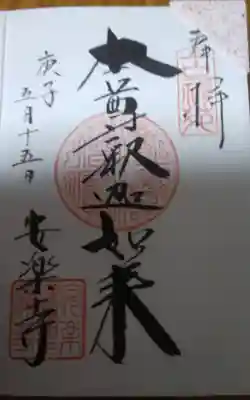 奉拝
本尊釈迦如来
庚子
五月十五日
安楽寺